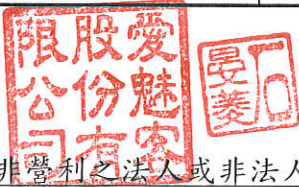 愛魅
股份有
限公司
石
晏菱
非營利之法人或非法人